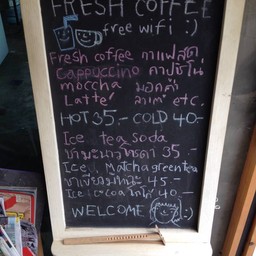 FRESH COFFEE
free wifi :)
Fresh coffee กาแฟสด
Cappuccino คาปูชิโน่
moccha มอคค่า
Latte ลาเต้ etc.
HOT 35.- COLD 40.-
Ice tea soda
ชามะนาวโซดา 35.-
Ice Matcha green tea
ชาเขียวมัทฉะ 45.-
Ice cocoa โกโก้ 40.-
WELCOME :)